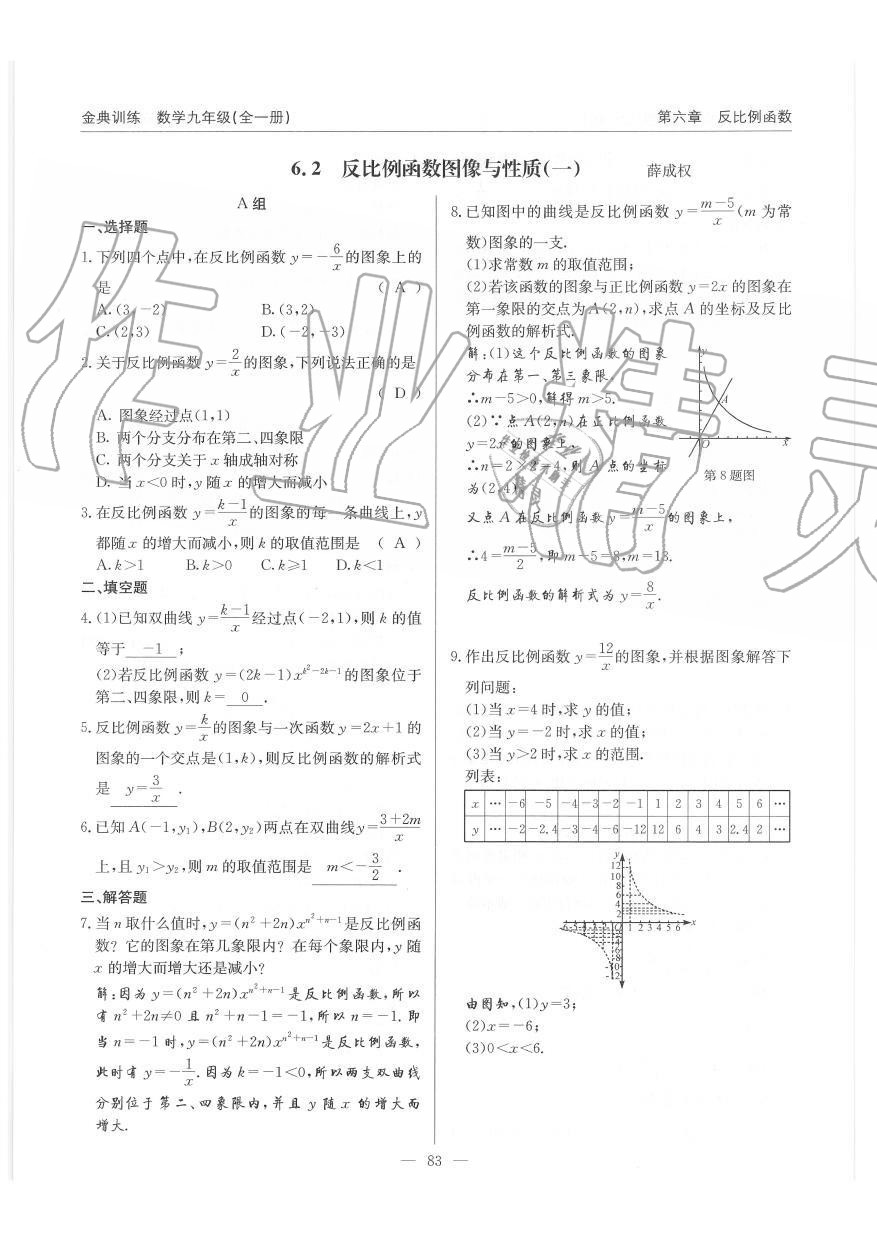 金典训练 数学九年级(全一册)
第六章 反比例函数
6.2 反比例函数图像与性质(一) 薛成权
A组
一、选择题
1.下列四个点中,在反比例函数 y=-6/x 的图象上的
是 ( A )
A.(3,-2) B.(3,2)
C.(2,3) D.(-2,-3)
2.关于反比例函数 y=2/x 的图象,下列说法正确的是
( D )
A. 图象经过点(1,1)
B. 两个分支分布在第二、四象限
C. 两个分支关于 x 轴成轴对称
D. 当 x<0 时,y 随 x 的增大而减小
3.在反比例函数 y=(k-1)/x 的图象的每一条曲线上,y
都随 x 的增大而减小,则 k 的取值范围是 ( A )
A.k>1 B.k>0 C.k⩾1 D.k<1
二、填空题
4.(1)已知双曲线 y=(k-1)/x 经过点(-2,1),则 k 的值
等于 -1 ;
(2)若反比例函数 y=(2k-1)x^(k²-2k-1) 的图象位于
第二、四象限,则 k= 0 .
5.反比例函数 y=k/x 的图象与一次函数 y=2x+1 的
图象的一个交点是(1,k),则反比例函数的解析式
是 y=3/x .
6.已知 A(-1,y₁),B(2,y₂)两点在双曲线 y=(3+2m)/x
上,且 y₁>y₂,则 m 的取值范围是 m<-3/2 .
三、解答题
7.当 n 取什么值时,y=(n²+2n)x^(n²+n-1) 是反比例函
数? 它的图象在第几象限内? 在每个象限内,y 随
x 的增大而增大还是减小?
解:因为 y=(n²+2n)x^(n²+n-1) 是反比例函数,所以
有 n²+2n≠0 且 n²+n-1=-1,所以 n=-1. 即
当 n=-1 时,y=(n²+2n)x^(n²+n-1) 是反比例函数,
此时有 y=-1/x. 因为 k=-1<0,所以两支双曲线
分别位于第二、四象限内,并且 y 随 x 的增大而
增大.
8.已知图中的曲线是反比例函数 y=(m-5)/x (m 为常
数)图象的一支.
(1)求常数 m 的取值范围;
(2)若该函数的图象与正比例函数 y=2x 的图象在
第一象限的交点为 A(2,n),求点 A 的坐标及反比
例函数的解析式.
解:(1)这个反比例函数的图象
分布在第一、第三象限,
∴m-5>0,解得 m>5.
(2)∵点 A(2,n)在正比例函数
y=2x 的图象上,
∴n=2×2=4,则 A 点的坐标
为(2,4).
y
A
O
x
第8题图
又点 A 在反比例函数 y=(m-5)/x 的图象上,
∴4=(m-5)/2,即 m-5=8,m=13.
反比例函数的解析式为 y=8/x.
9.作出反比例函数 y=12/x 的图象,并根据图象解答下
列问题:
(1)当 x=4 时,求 y 的值;
(2)当 y=-2 时,求 x 的值;
(3)当 y>2 时,求 x 的范围.
列表:
x … -6 -5 -4 -3 -2 -1 1 2 3 4 5 6 …
y … -2 -2.4 -3 -4 -6 -12 12 6 4 3 2.4 2 …
y
12
10
8
6
4
2
1 2 3 4 5 6 x
由图知,(1)y=3;
(2)x=-6;
(3)0<x<6.
— 83 —
作业精灵